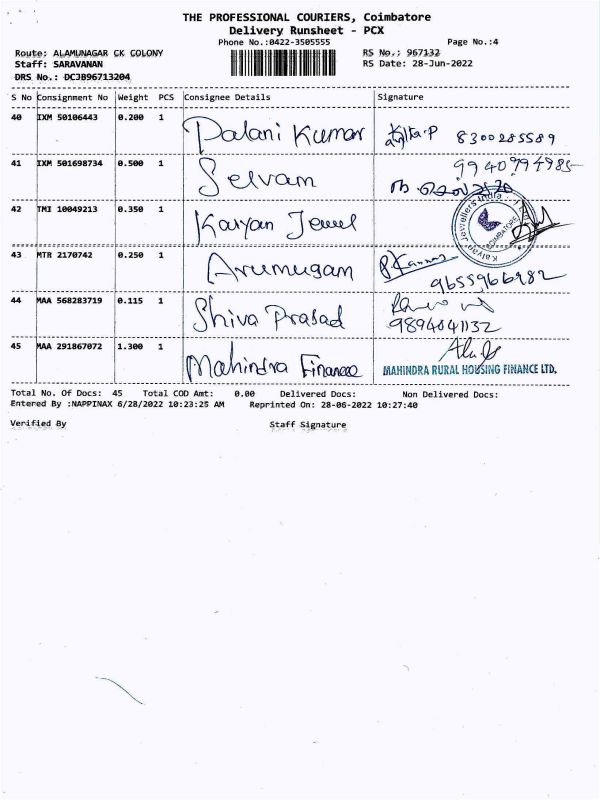 THE PROFESSIONAL COURIERS, Coimbatore
Delivery Runsheet - PCX
Phone No.:0422-3505555
Page No.:4
Route: ALAMUNAGAR CK COLONY
RS No.; 967132
Staff: SARAVANAN
RS Date: 28-Jun-2022
DRS No.: DCJB96713204
S No Consignment No Weight PCS Consignee Details Signature
40 IXM 50106443 0.200 1 Palani Kumar 8300285589
41 IXM 501698734 0.500 1 Selvam 9940794985
42 TMI 10049213 0.350 1 Kalyan Jewel Kalyan Jewellers India COIMBATORE
43 MTR 2170742 0.250 1 Arumugam 9655966982
44 MAA 568283719 0.115 1 Shiva Prasad 9894041132
45 MAA 291867072 1.300 1 Mahindra Finance MAHINDRA RURAL HOUSING FINANCE LTD.
Total No. Of Docs: 45 Total COD Amt: 0.00 Delivered Docs: Non Delivered Docs:
Entered By :NAPPINAX 6/28/2022 10:23:25 AM Reprinted On: 28-06-2022 10:27:40
Verified By Staff Signature